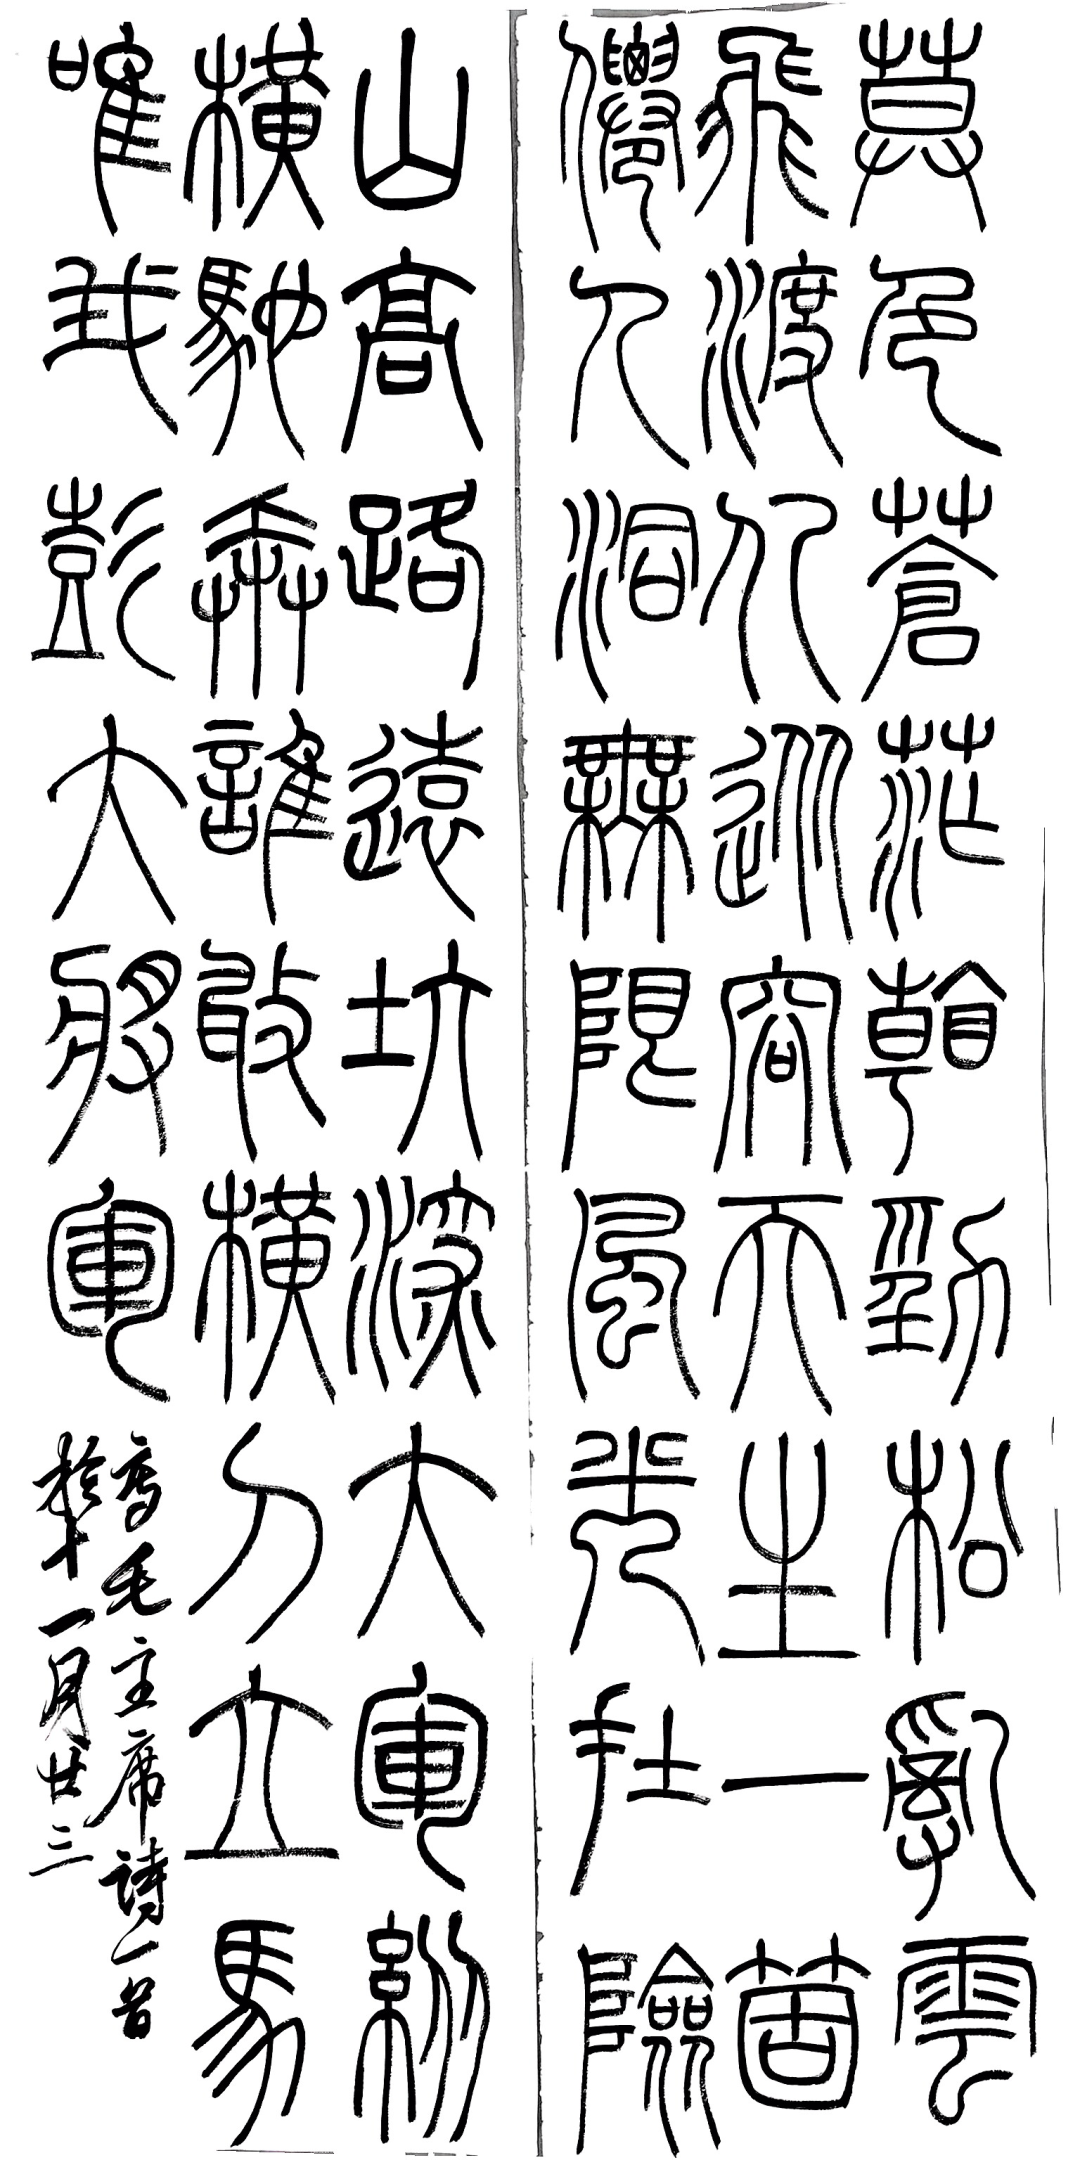 莫色蒼茫看勁松亂雲
飛渡仍從容天生一箇
僊人洞無限風光在險
山高路遠坑深大軍縱
橫馳奔誰敢橫刀立馬
唯我彭大將軍
寫毛主席詩一首
於十一月廿三